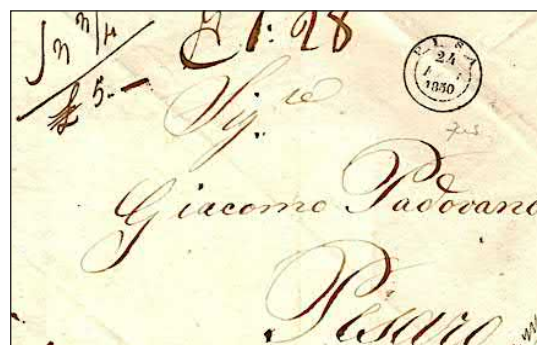 5.-
1: 28
PISA
24
1850
Sig.re
Giacomo Padovano
Pesaro